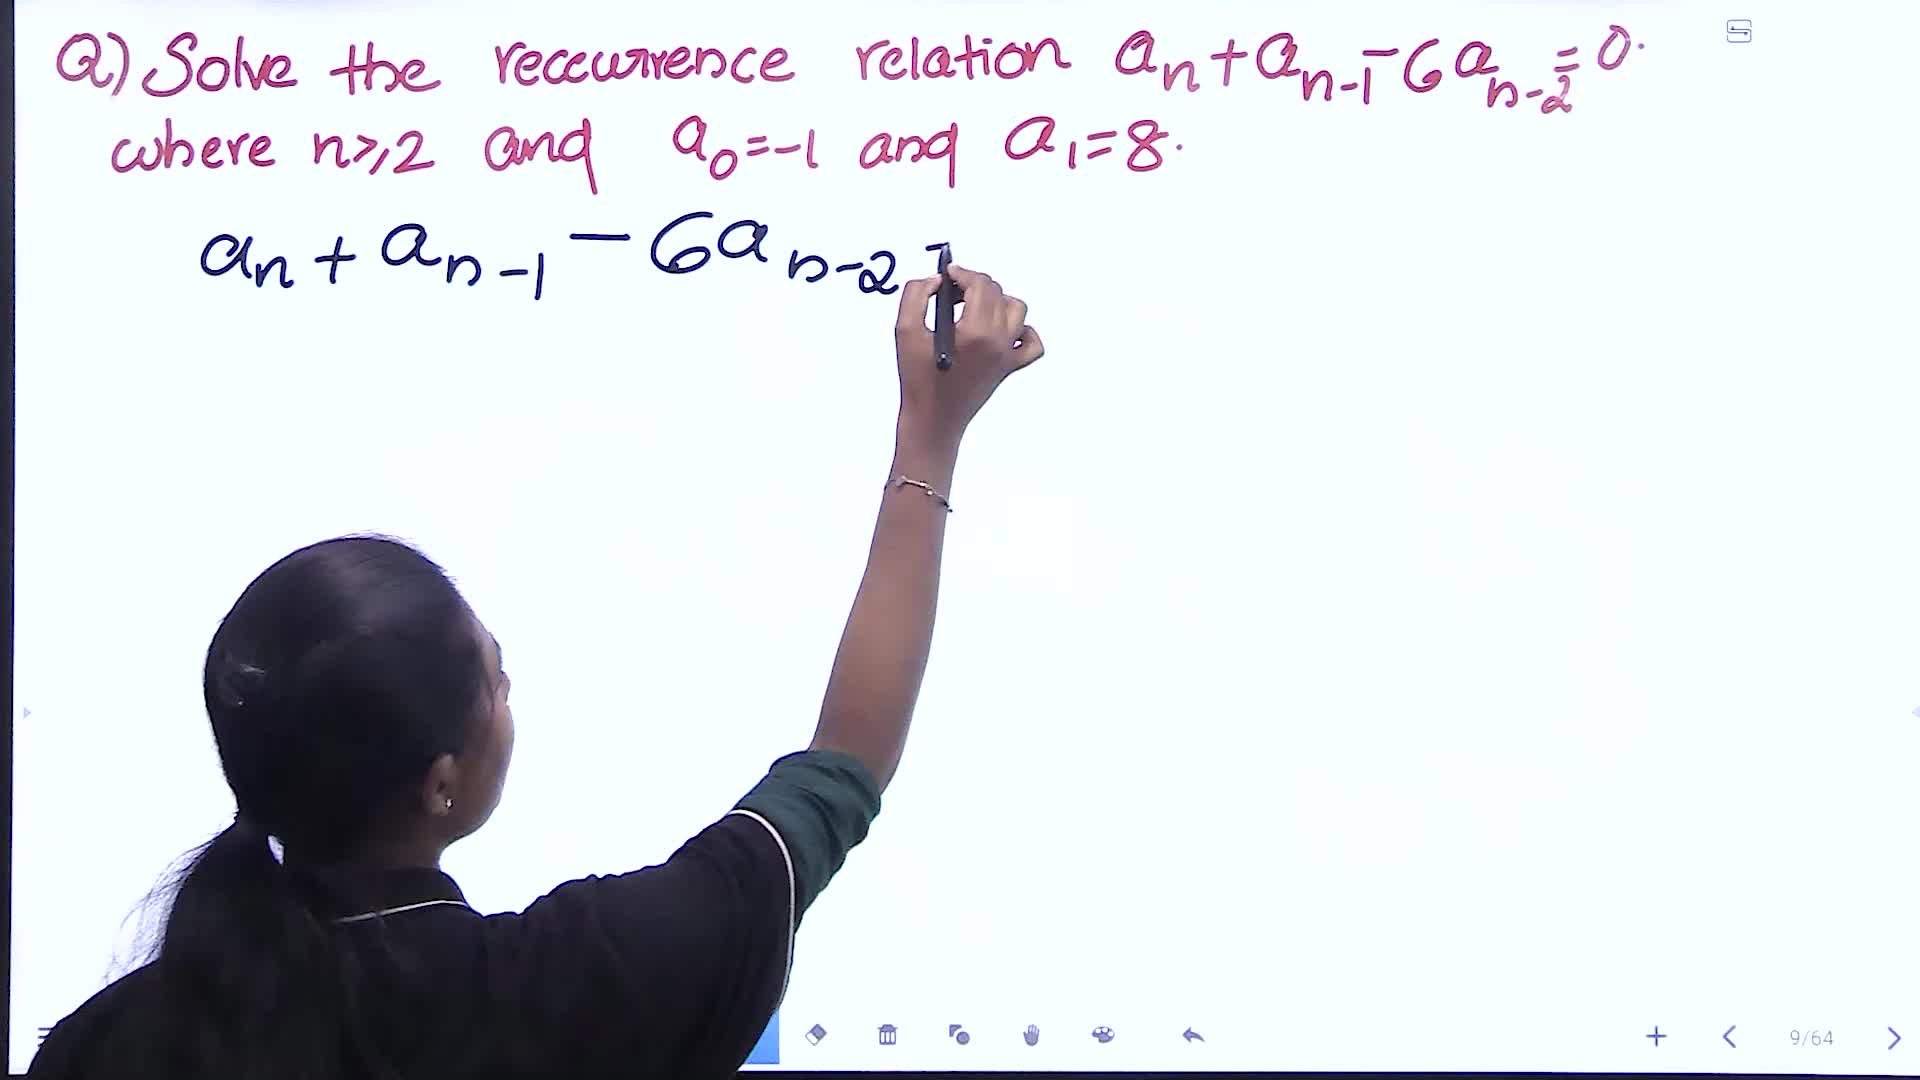 Q) Solve the reccurrence relation aₙ + aₙ₋₁ - 6aₙ₋₂ = 0.
where n ≥ 2 and a₀ = -1 and a₁ = 8.
aₙ + aₙ₋₁ - 6aₙ₋₂
9/64